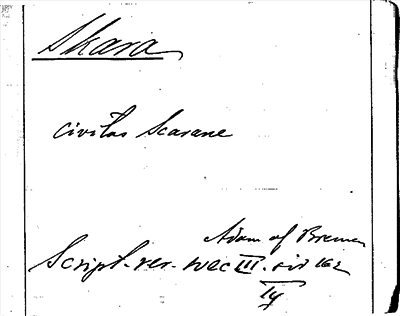 Skara
civitas Scarane
Adam of Bremen
Script. rer. svec III. sid 162